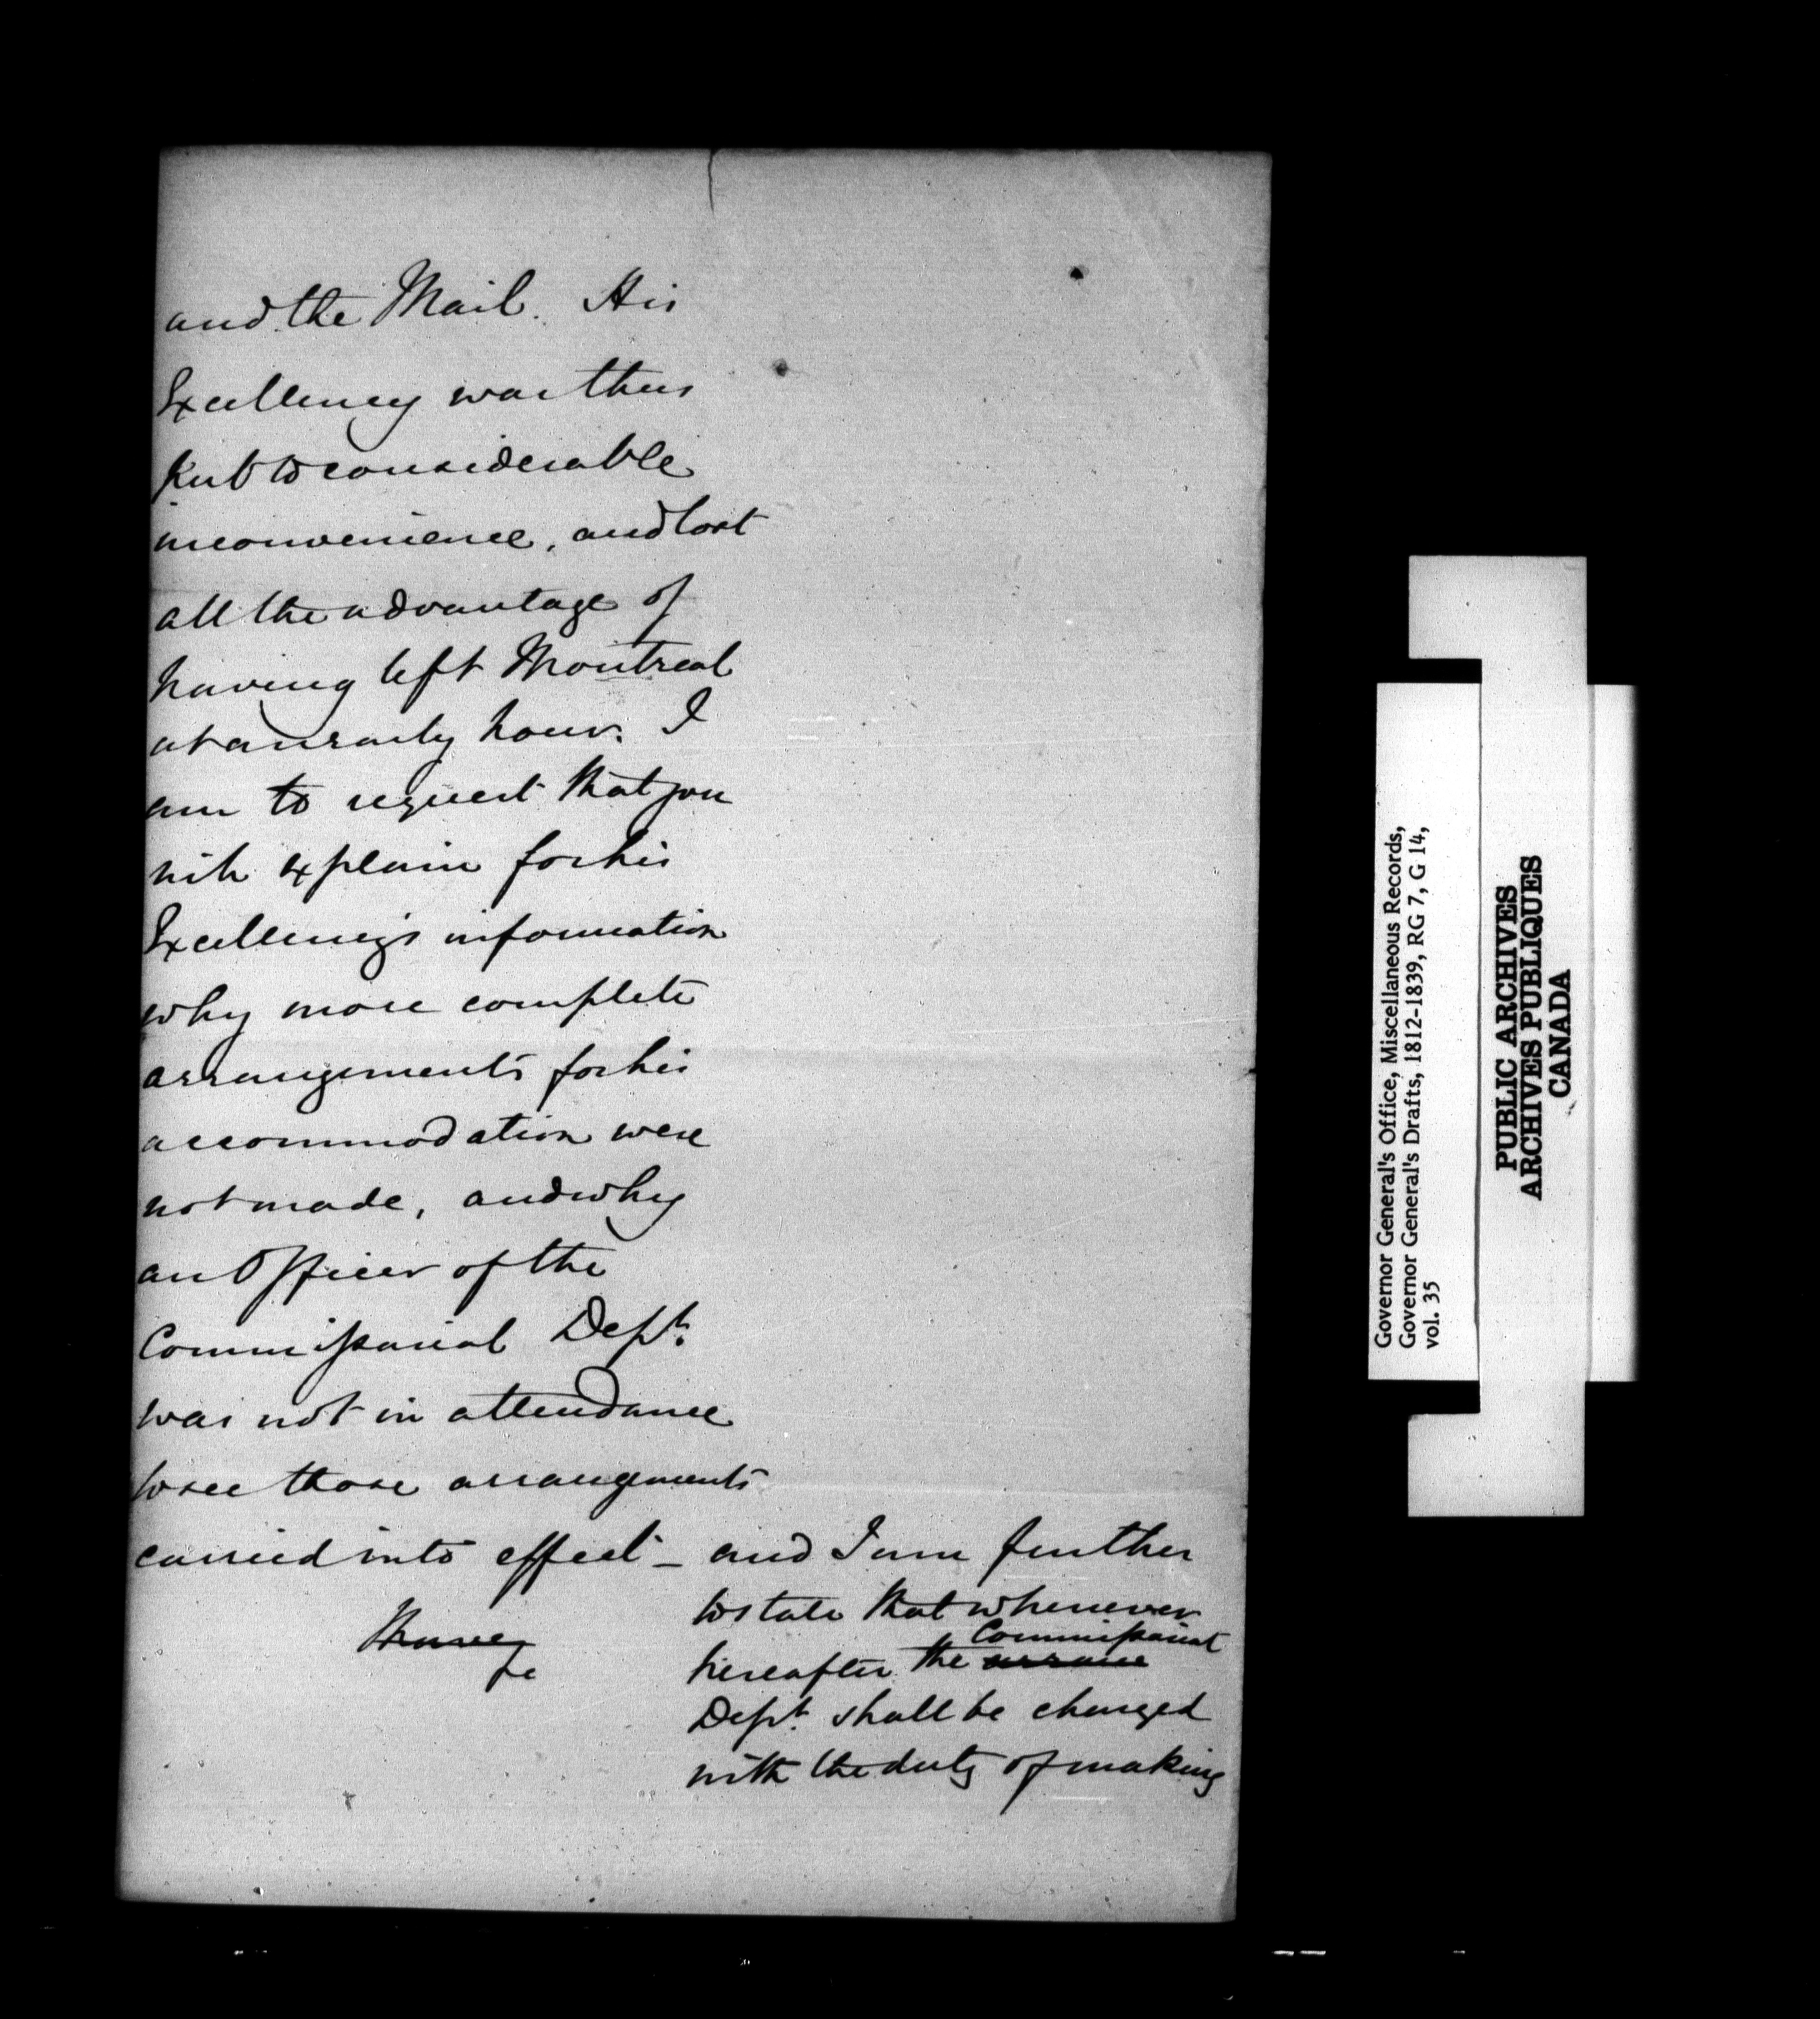 and the Mail. His
Excellency was thus
put to considerable
inconvenience, and lost
all the advantage of
having left Montreal
at an early hour. I
am to request that you
will explain for his
Excellency's information
why more complete
arrangements for his
accommodation were
not made, and why
an Officer of the
Commissariat Dept.
was not in attendance
to see those arrangements
carried into effect – and I am further
to state that whenever
Commissariat
hereafter the arrange
Dept. shall be charged
with the duty of making
I have
&c
Governor General's Office, Miscellaneous Records,
Governor General's Drafts, 1812-1839, RG 7, G 14,
vol. 35
PUBLIC ARCHIVES
ARCHIVES PUBLIQUES
CANADA